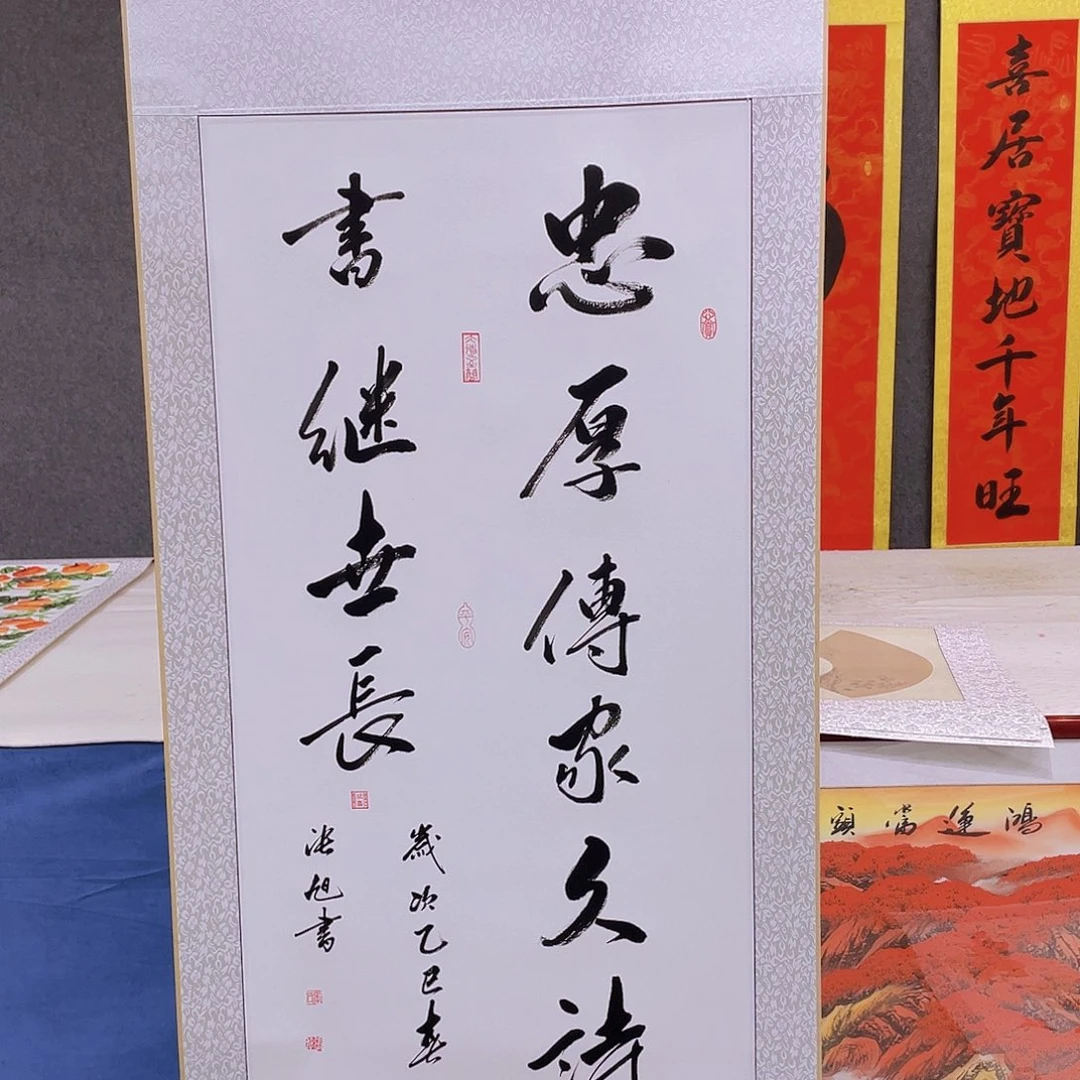 忠厚傳家久詩
書继世長
歲次乙巳春
張旭書
喜居寶地千年旺
鴻運當頭